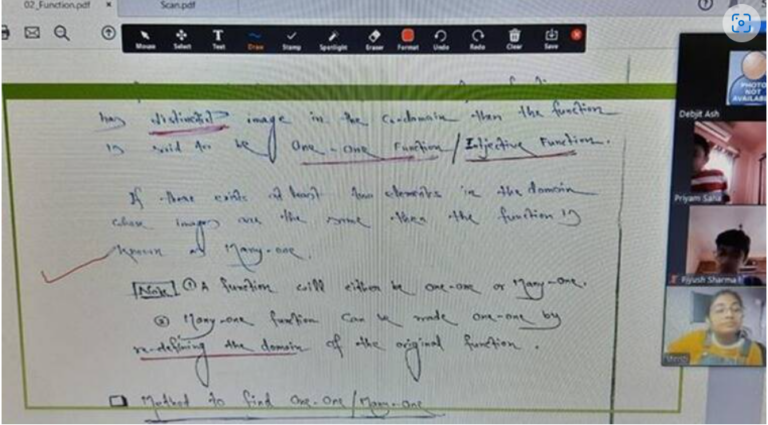 02_Function.pdf × Scan.pdf
Mouse Select Text Draw Stamp Spotlight Eraser Format Undo Redo Clear Save
has distinct image in the co-domain then the function
is said to be One-one Function / Injective Function.
If there exists at least two elements in the domain
whose images are the same then the function is
known as Many-one.
Note ① A function will either be one-one or Many-one.
② Many-one function can be made one-one by
re-defining the domain of the original function.
Method to find One-One / Many-one
PHOTO
NOT
AVAILABLE
Debjit Ash
Priyam Saha
Piyush Sharma